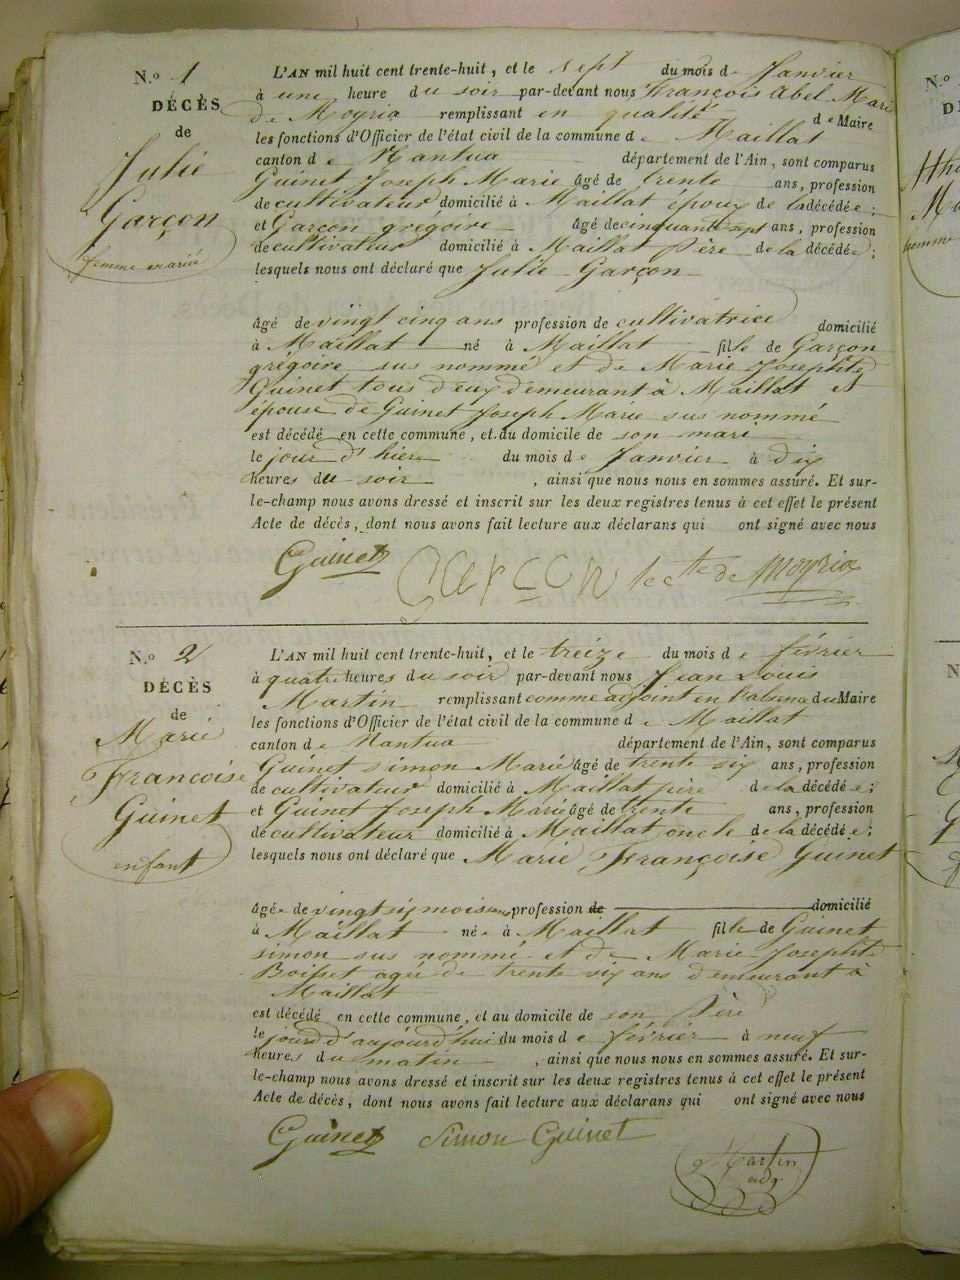 N.o 1
DÉCÈS
de
Julie
Garçon
femme mariée
L'AN mil huit cent trente-huit, et le sept du mois de Janvier
à une heure du soir par-devant nous François Abel Marie
de Moyria remplissant en qualité de Maire
les fonctions d'Officier de l'état civil de la commune de Maillat
canton de Nantua département de l'Ain, sont comparus
Guinet Joseph Marie âgé de trente ans, profession
de cultivateur domicilié à Maillat époux de la décédée ;
et Garçon grégoire âgé de cinquante sept ans, profession
de cultivateur domicilié à Maillat père de la décédée ;
lesquels nous ont déclaré que Julie Garçon
âgé de vingt cinq ans profession de cultivatrice domicilié
à Maillat né à Maillat fille de Garçon
grégoire sus nommé et de Marie Josephte
Guinet tous deux demeurant à Maillat et
épouse de Guinet Joseph Marie sus nommé
est décédé en cette commune, et au domicile de son mari
le jour d'hier du mois de Janvier à dix
heures du soir , ainsi que nous nous en sommes assuré. Et sur-
le-champ nous avons dressé et inscrit sur les deux registres tenus à cet effet le présent
Acte de décès, dont nous avons fait lecture aux déclarans qui ont signé avec nous
Guinet Garcon le cte de Moyria
N.o 2
DÉCÈS
de
Marie
Françoise
Guinet
enfant
L'AN mil huit cent trente-huit, et le treize du mois de février
à quatre heures du soir par-devant nous Jean Louis
Martin remplissant comme adjoint en l'absence du Maire
les fonctions d'Officier de l'état civil de la commune de Maillat
canton de Nantua département de l'Ain, sont comparus
Guinet simon Marie âgé de trente six ans, profession
de cultivateur domicilié à Maillat père de la décédée ;
et Guinet Joseph Marie âgé de trente ans, profession
de cultivateur domicilié à Maillat oncle de la décédée ;
lesquels nous ont déclaré que Marie Françoise Guinet
âgée de vingt six mois profession de domicilié
à Maillat née à Maillat fille de Guinet
simon sus nommé et de Marie Josephte
Boisset agée de trente six ans demeurant à
Maillat
est décédé en cette commune, et au domicile de son père
le jour d'aujourd'hui du mois de février à neuf
heures du matin , ainsi que nous nous en sommes assuré. Et sur-
le-champ nous avons dressé et inscrit sur les deux registres tenus à cet effet le présent
Acte de décès, dont nous avons fait lecture aux déclarans qui ont signé avec nous
Guinet Simon Guinet
Martin
adj